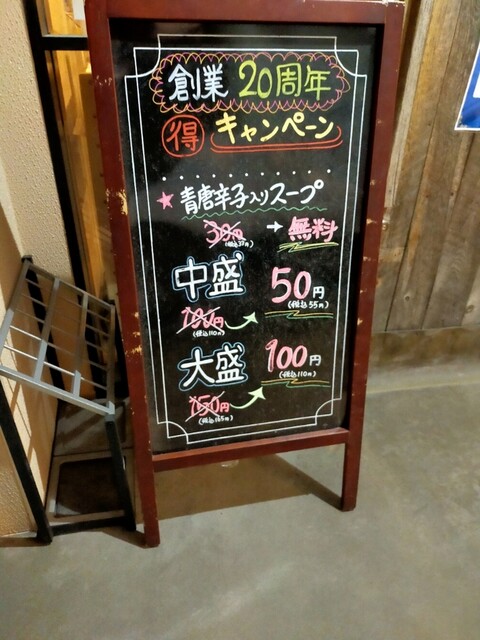 創業 20周年
得 キャンペーン
★青唐辛子入りスープ
30円 → 無料
(税込33円)
中盛 50円
(税込55円)
100円
(税込110円)
大盛 100円
(税込110円)
150円
(税込165円)